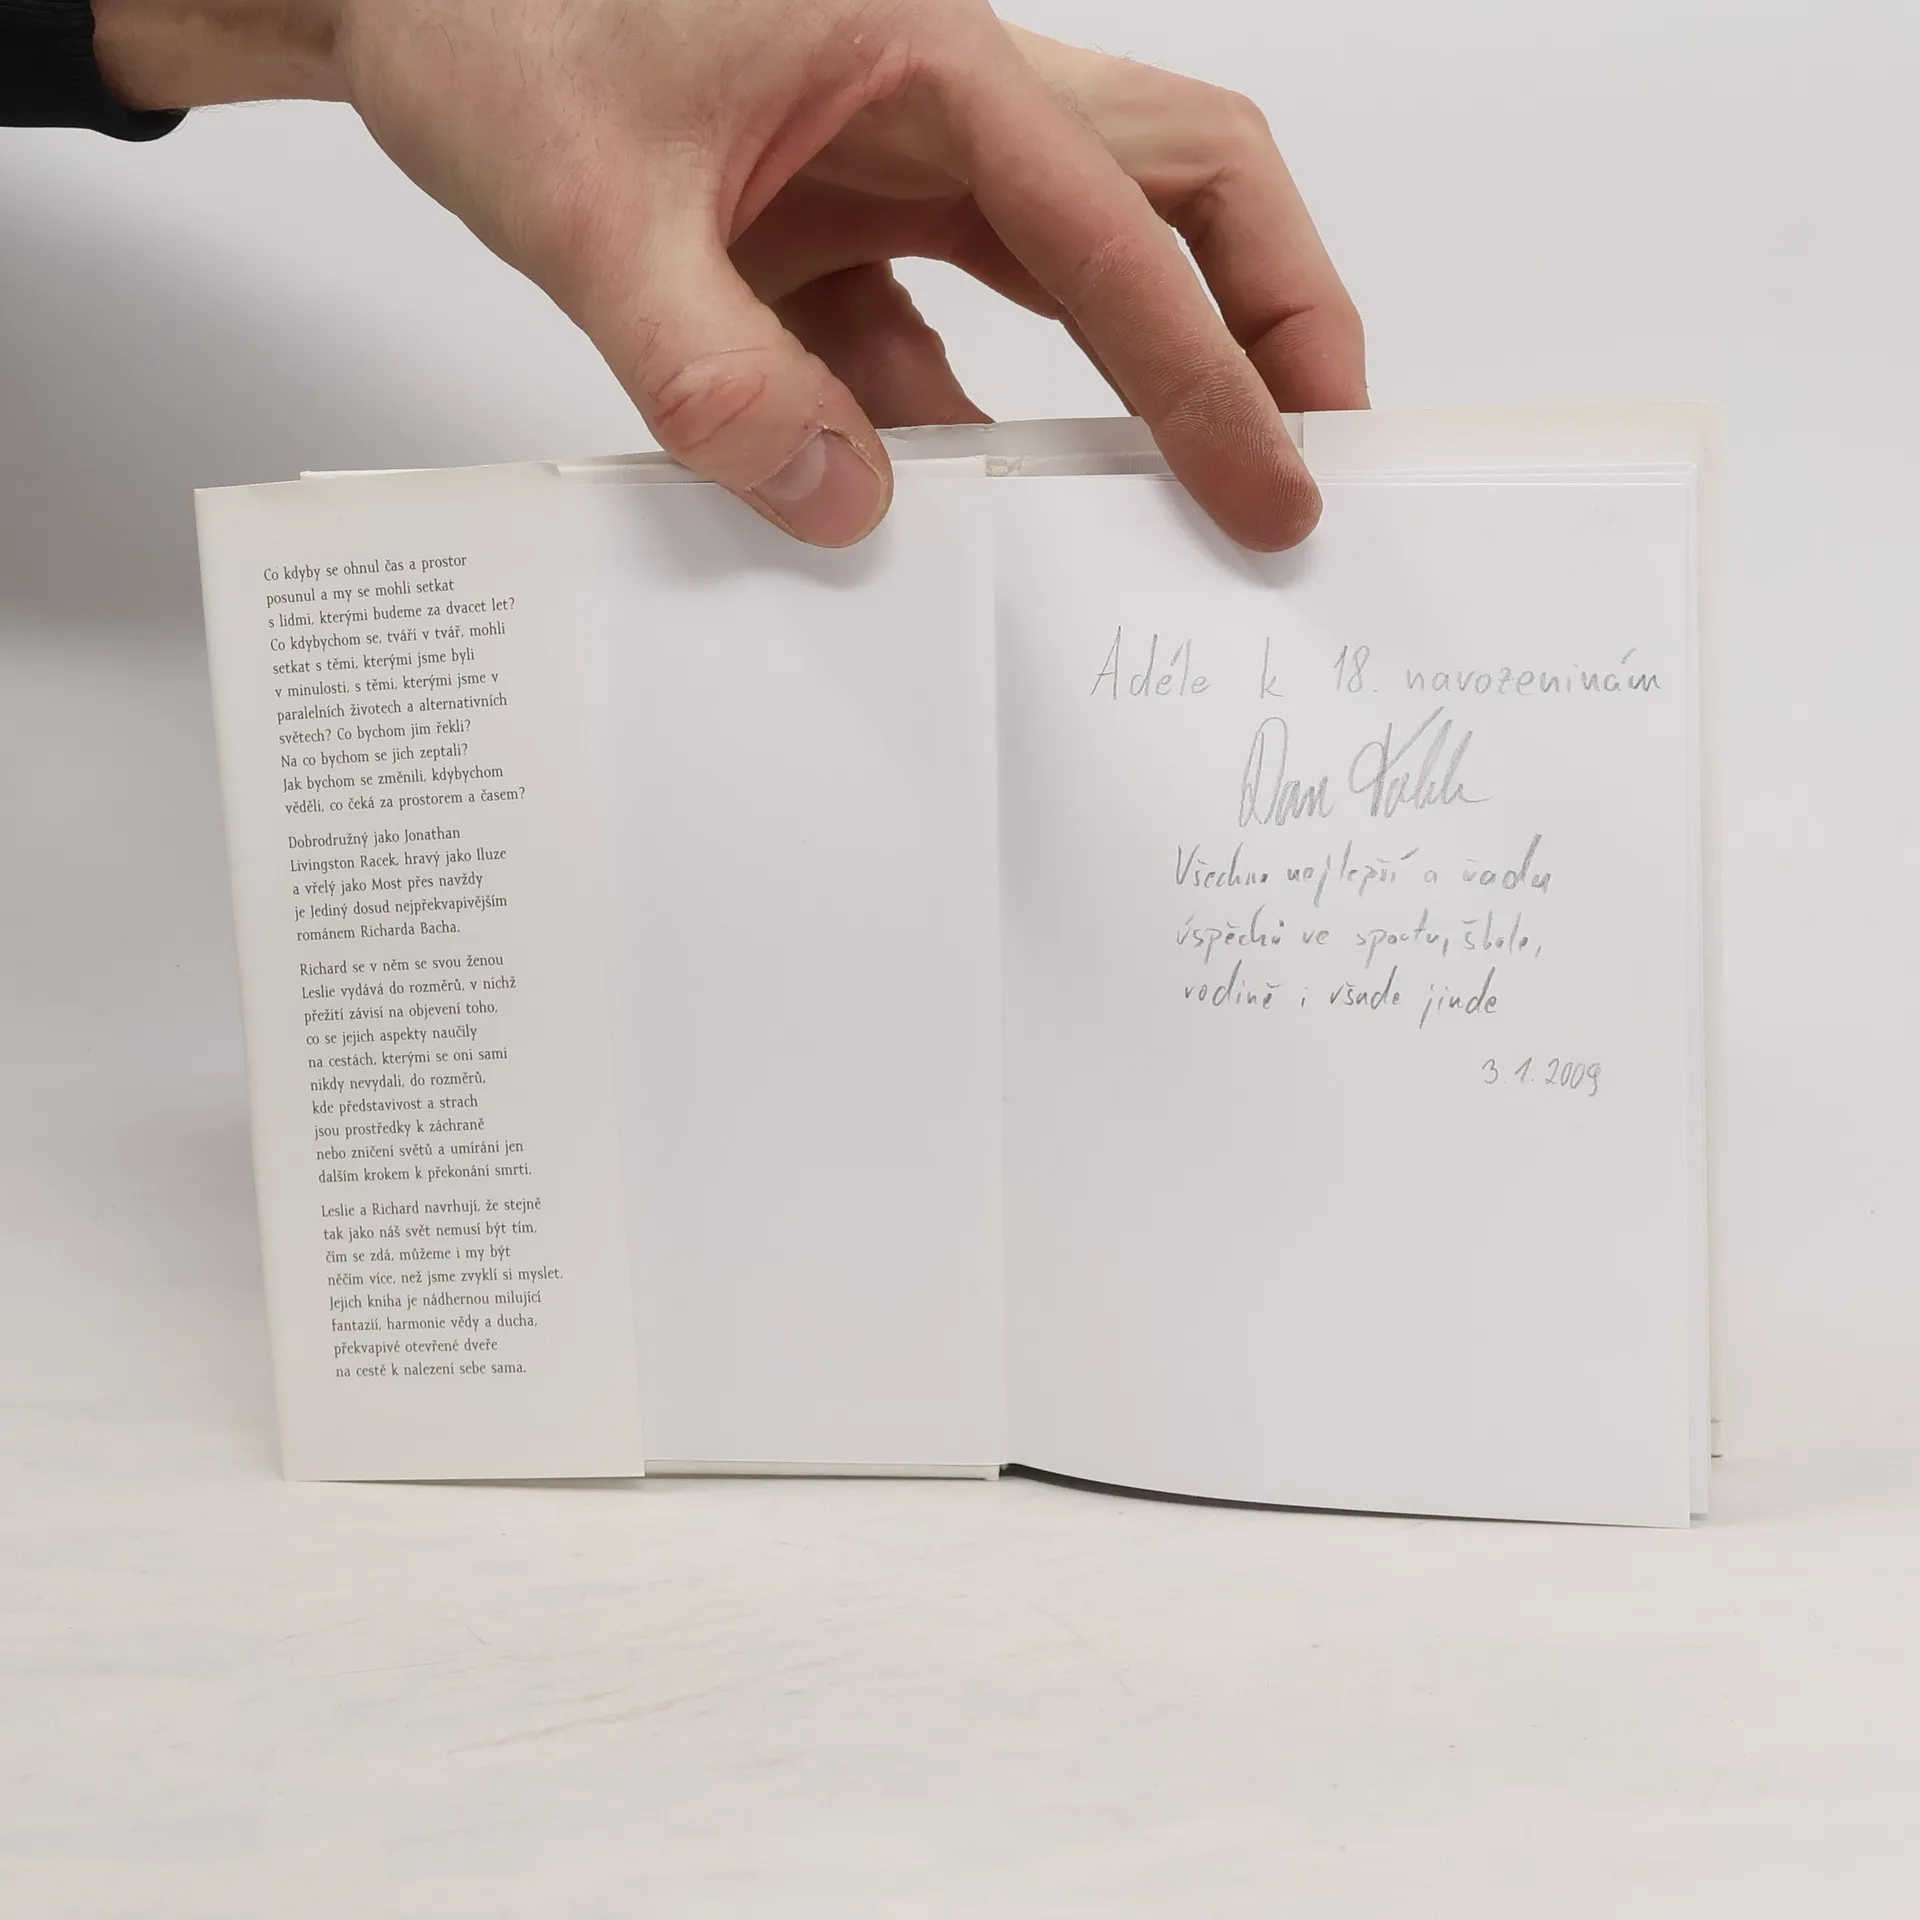 Co kdyby se ohnul čas a prostor
posunul a my se mohli setkat
s lidmi, kterými budeme za dvacet let?
Co kdybychom se, tváří v tvář, mohli
setkat s těmi, kterými jsme byli
v minulosti, s těmi, kterými jsme v
paralelních životech a alternativních
světech? Co bychom jim řekli?
Na co bychom se jich zeptali?
Jak bychom se změnili, kdybychom
věděli, co čeká za prostorem a časem?
Dobrodružný jako Jonathan
Livingston Racek, hravý jako Iluze
a vřelý jako Most přes navždy
je Jediný dosud nejpřekvapivějším
románem Richarda Bacha.
Richard se v něm se svou ženou
Leslie vydává do rozměrů, v nichž
přežití závisí na objevení toho,
co se jejich aspekty naučily
na cestách, kterými se oni sami
nikdy nevydali, do rozměrů,
kde představivost a strach
jsou prostředky k záchraně
nebo zničení světů a umírání jen
dalším krokem k překonání smrti.
Leslie a Richard navrhují, že stejně
tak jako náš svět nemusí být tím,
čím se zdá, můžeme i my být
něčím více, než jsme zvyklí si myslet.
Jejich kniha je nádhernou milující
fantazií, harmonie vědy a ducha,
překvapivé otevřené dveře
na cestě k nalezení sebe sama.
Adéle k 18. narozeninám
Dan
Všechno nejlepší a řadu
úspěchů ve sportu, škole,
rodině i všude jinde
3.1.2009